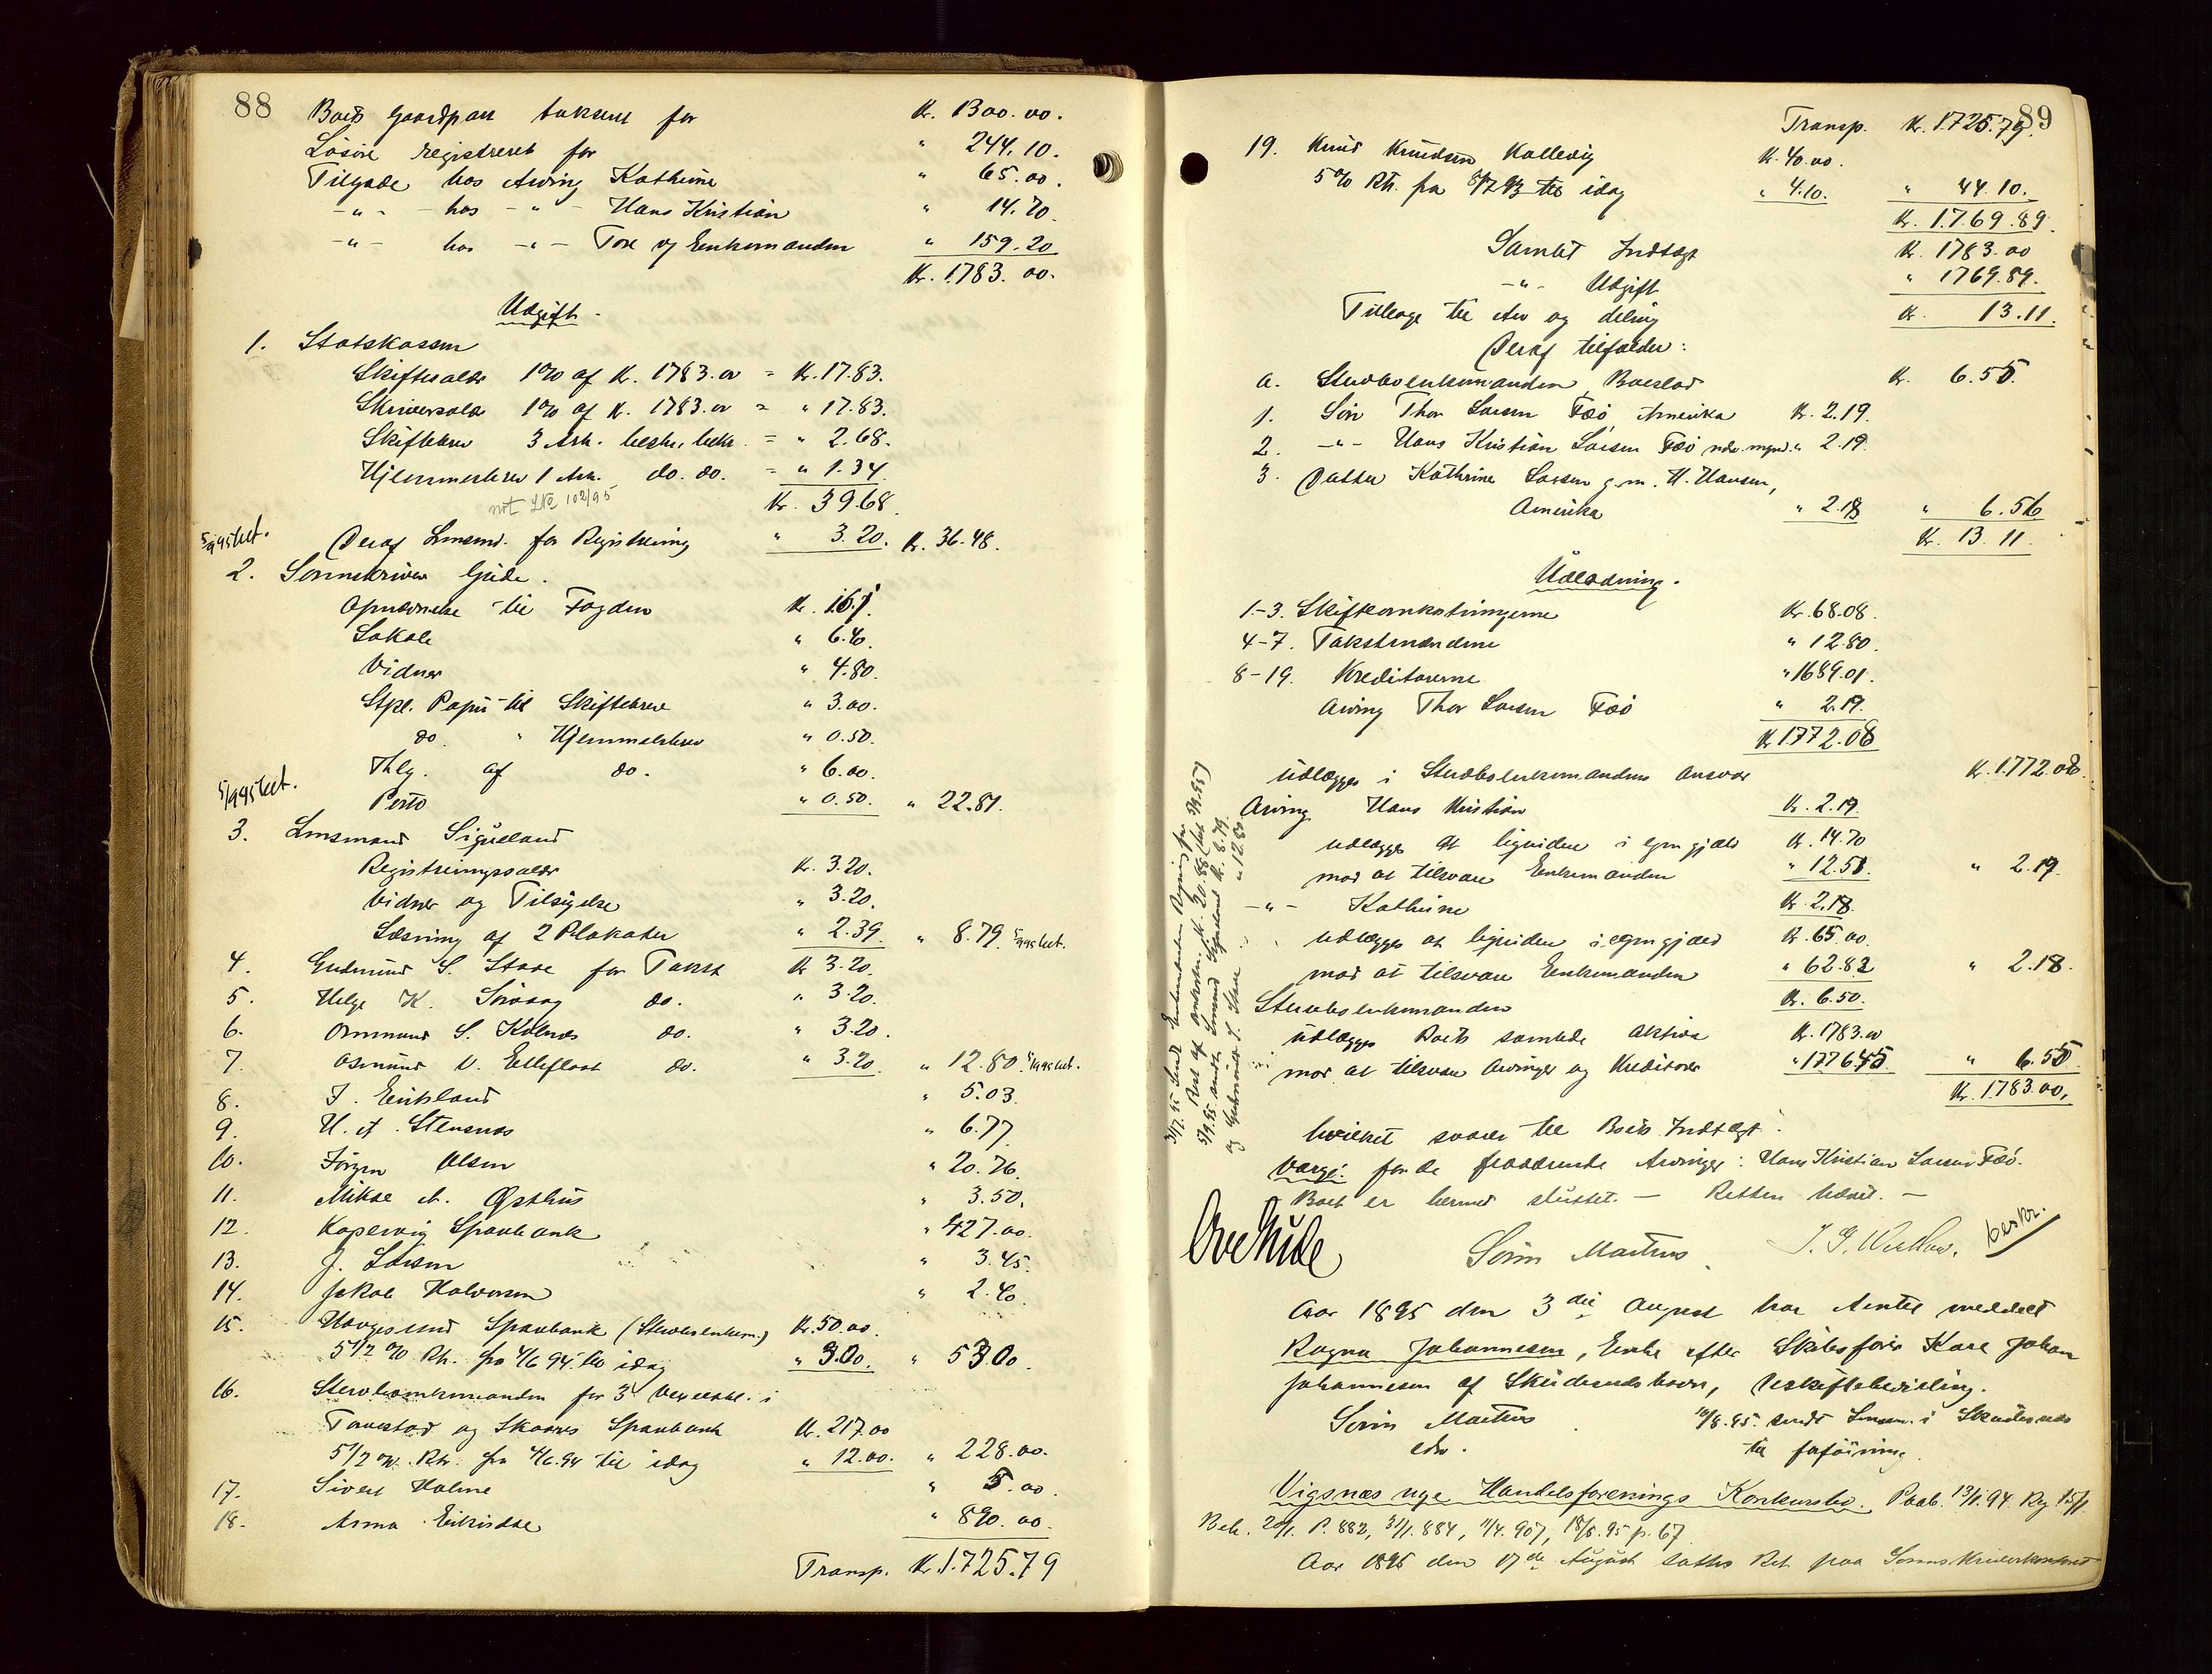 88
Boets Gaardpart takseret for Kr. 1300.00.
Løsøre registreret for " 244.10.
Tilgode hos Arving Kathrine " 65.00.
-"- hos -"- Hans Kristian " 14.70
-"- hos -"- Tore og Enkemanden " 159.20
Kr. 1783.00.
Udgift.
1. Statskassen
Skiftesalær 1% af Kr. 1783.00 = Kr. 17.83.
Skriversalær 1% af Kr. 1783.00 = " 17.83.
Skiftebrev 3 Ark. beskr. bekr. = " 2.68.
Hjemmelsbrev 1 Ark. do. do. = " 1.34
not 102/95
Kr. 39.68.
Deraf Lensmd. for Registrering " 3.20. Kr. 36.48.
2. Sorenskriver Gjide.
Opnævnelse til Fogden Kr. 1.61.
Lokale " 6.40.
Vidner " 4.80.
Stpl. Papir til Skiftebrev " 3.00.
do. " Hjemmelsbrev " 0.50.
Thlg. af do. " 6.00.
5/9 95 bet.
Porto " 0.50. " 22.81.
3. Lensmand Sigveland
Registreringssalær Kr. 3.20.
Vidner og Tilsigelse " 3.20.
Læsning af 2 Plakater " 2.39. " 8.79. 5/9 95 bet.
4. Gudmund S. Stave for Takst Kr 3.20.
5. Helge K. Sørvaag do. " 3.20.
6. Ommund S. Kolnes do. " 3.20.
7. Osmund V. Elleflaat do. " 3.20 " 12.80 5/9 95 bet.
8. J. Eriksland " 5.03.
9. H. A. Stensnes " 6.77.
10. Jørgen Olsen " 20.76.
11. Mikal A. Østhus " 3.50.
12. Kopervig Sparebank " 427.00.
13. J. Larsen " 3.45.
14. Jakob Halvorsen " 2.40.
15. Haugesund Sparebank (Stervbsenkem.) Kr. 50.00.
5 1/2 % Rt. fra 4/6 94 til idag " 3.00. " 53.00.
16. Stervboenkemanden for 3 i
Torvestad og Skaares Sparebank Kr. 217.00
5 1/2 % Rtr. fra 4/6.94 til idag " 12.00. " 228.00.
17. Sivert Holme " 5.00.
18. Anna Eriksdtr " 890.00.
Transp. Kr. 1725.79
89
Transp. Kr. 1725.79.
19. Knud Knudsen Kallevig Kr. 40.00.
5% Rt. fra 8/7 93 til idag " 4.10. " 44.10.
Kr. 1769.89.
Samlet Indtægt Kr. 1783.00
-"- Udgift " 1769.89.
Tilbage til Arv og deling Kr. 13.11.
Deraf tilfalder:
a. Stervboenkemanden Boeslod Kr. 6.55.
1. Søn Thor Larsen Feø Amerika Kr. 2.19.
2. -"- Hans Kristian Larsen Feø " 2.19.
3. Datter Kathrine Larsen g.m. H. Hansen,
Amerika " 2.18 " 6.56
Kr. 13.11.
Udlodning.
1-3. Skifteomkostningerne Kr. 68.08.
4-7. Takstmændene " 12.80.
8-19. Kreditorerne " 1689.01.
Arving Thor Larsen Feø " 2.19.
Kr 1772.08
udlægges i Stervboenkemandens ansvar Kr. 1772.08.
Arving Hans Kristian Kr. 2.19
udlægges at liquidere i egen gjæld Kr. 14.70
mod at tilsvare Enkemanden " 12.51. " 2.19.
-"- Kathrine Kr. 2.18.
udlægges at liquidere i egen gjæld Kr. 65.00.
mod at tilsvare Enkemanden " 62.82 " 2.18.
Stervboenkemanden Kr. 6.50.
udlægges Boets samlede Aktiva Kr. 1783.00
mod at tilsvare Arvinger og Kreditorer " 1776.45 " 6.55
Kr. 1783.00.
hvilket svarer til Boets Indtægt.
Værge for de fraværende Arvinger: Hans Kristian Larsen Feø.
Boet er hermed sluttet. — Retten hævet. —
Søren Martens. beskr.
Aar 1895 den 3die August har Amtet meddelt
Ragna Johannesen, Enke efter Skibsfører Kare Johan
Johannesen af Skudesneshavn, Uskiftebevilling.
Søren Martens 10/8.95. sendt Lensm. i Skudesnes
edv. til forføining.
Vigsnæs nye Handelsforenings Konkursbo. Paab. 13/1.94. Reg 15/1
Bek. 20/1. P. 882, 31/1. 884, 11/4. 907, 18/5.95 p. 67
Aar 1895 den 17de August sattes Ret paa Sorenskriverkontoret